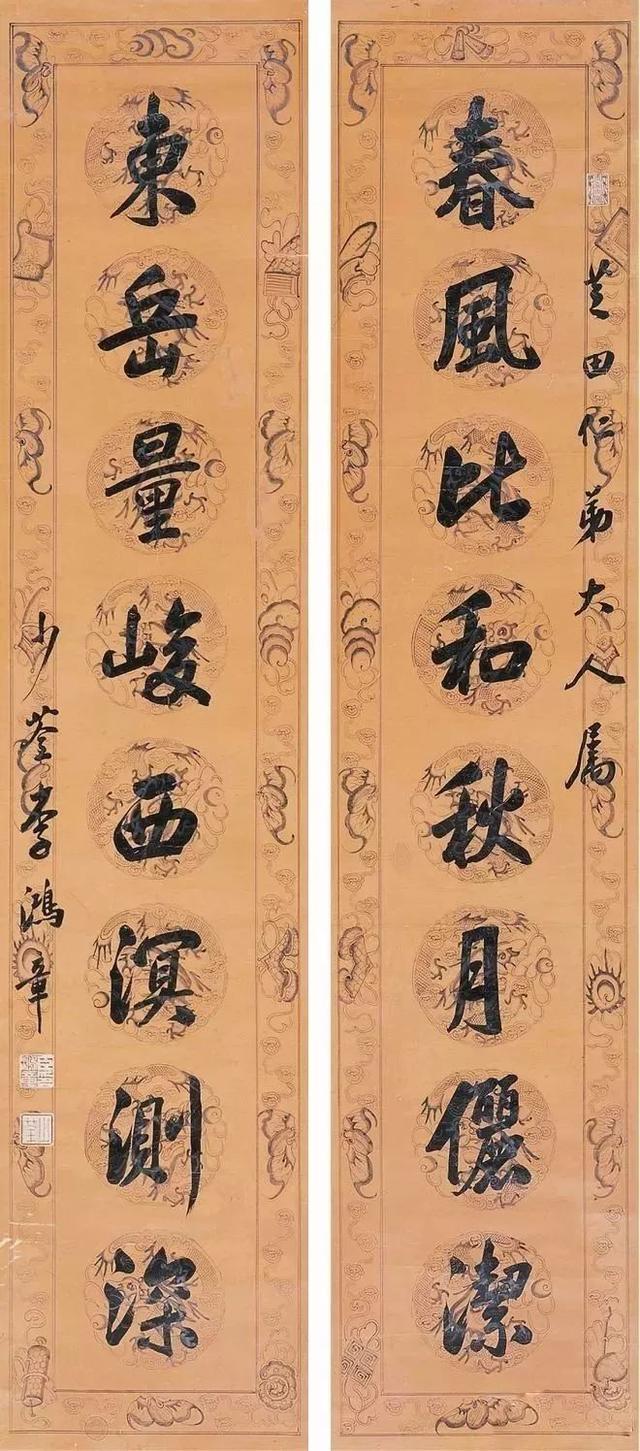 芝田仁弟大人属
春風比和秋月儷潔
東岳量峻西溟測深
少荃李鴻章